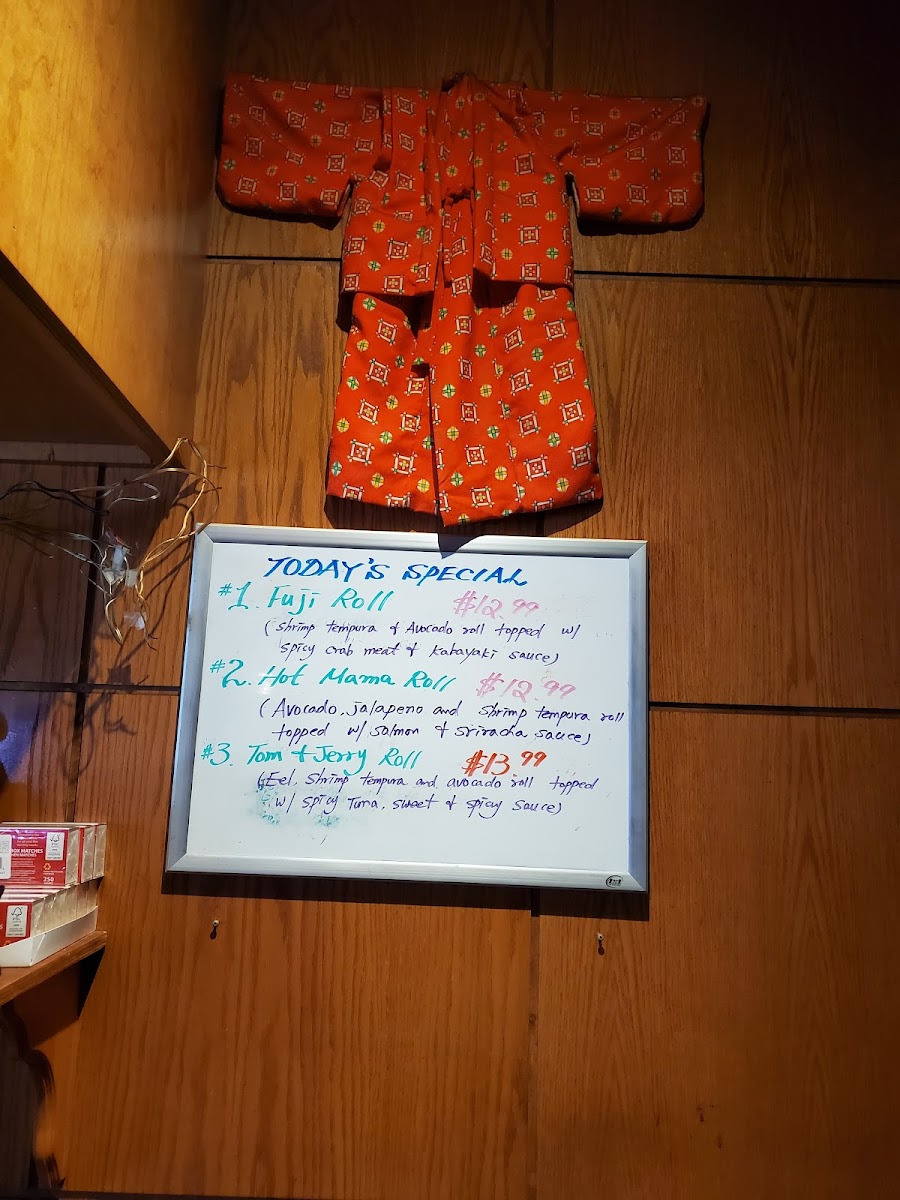 TODAY'S SPECIAL
#1. Fuji Roll $12.99
(Shrimp tempura & Avocado roll topped w/
spicy crab meat & Kabayaki sauce)
#2. Hot Mama Roll $12.99
(Avocado, jalapeno and shrimp tempura roll
topped w/ salmon & sriracha sauce)
#3. Tom & Jerry Roll $13.99
(Eel, shrimp tempura and avocado roll topped
w/ spicy Tuna, sweet & spicy sauce)
BOX MATCHES
250
FSC